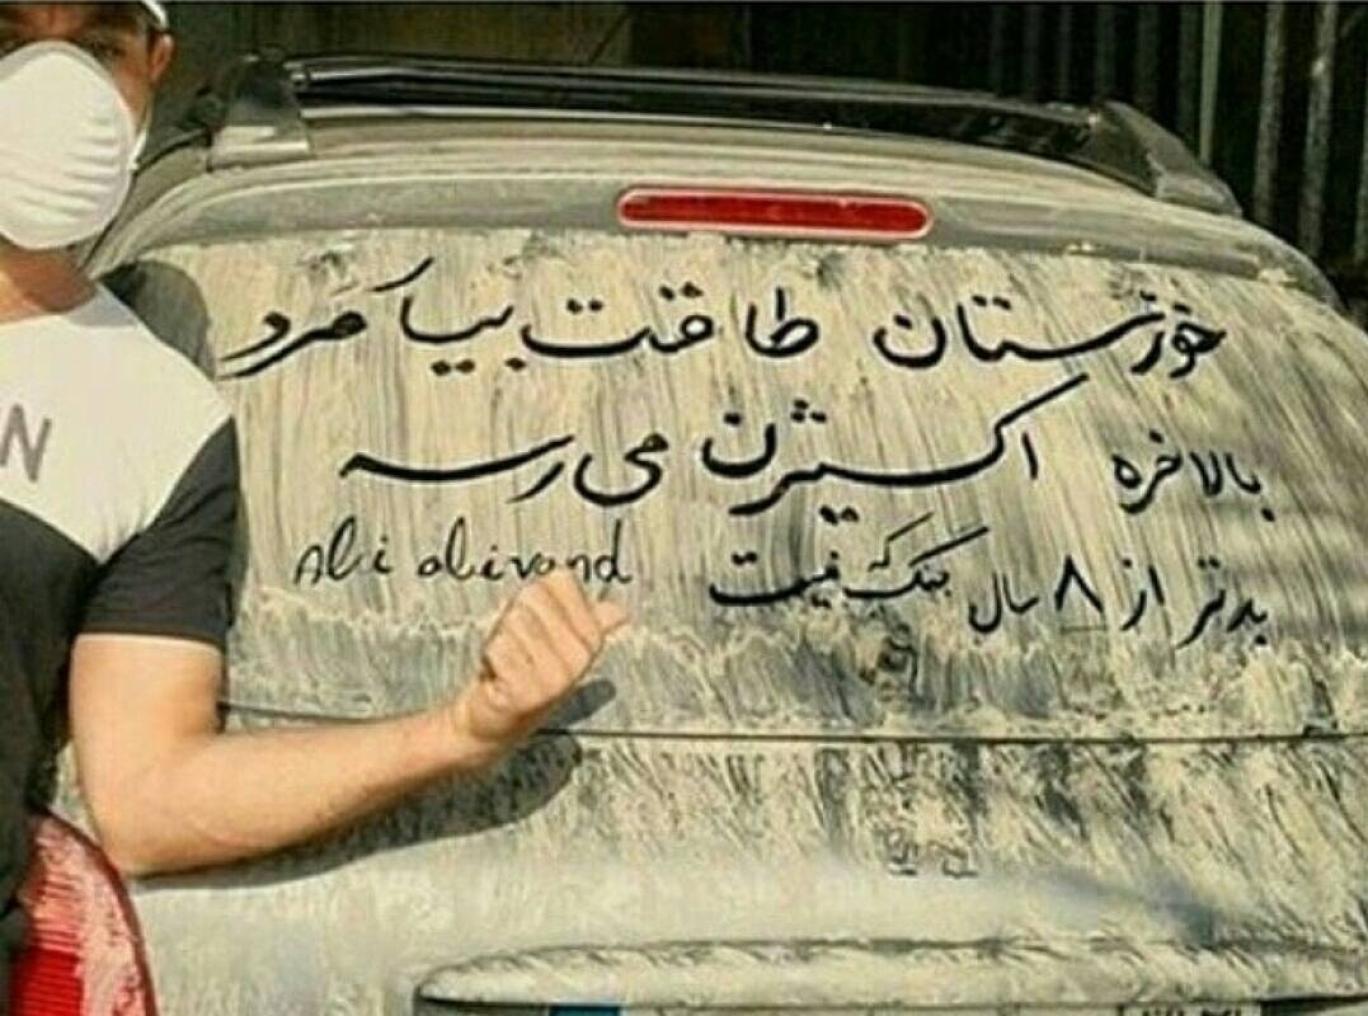 خوزستان طاقت بیا مَرد
بالاخره اکسیژن می رسه
بدتر از ۸ سال جنگ که نیست
Ali alivand
N